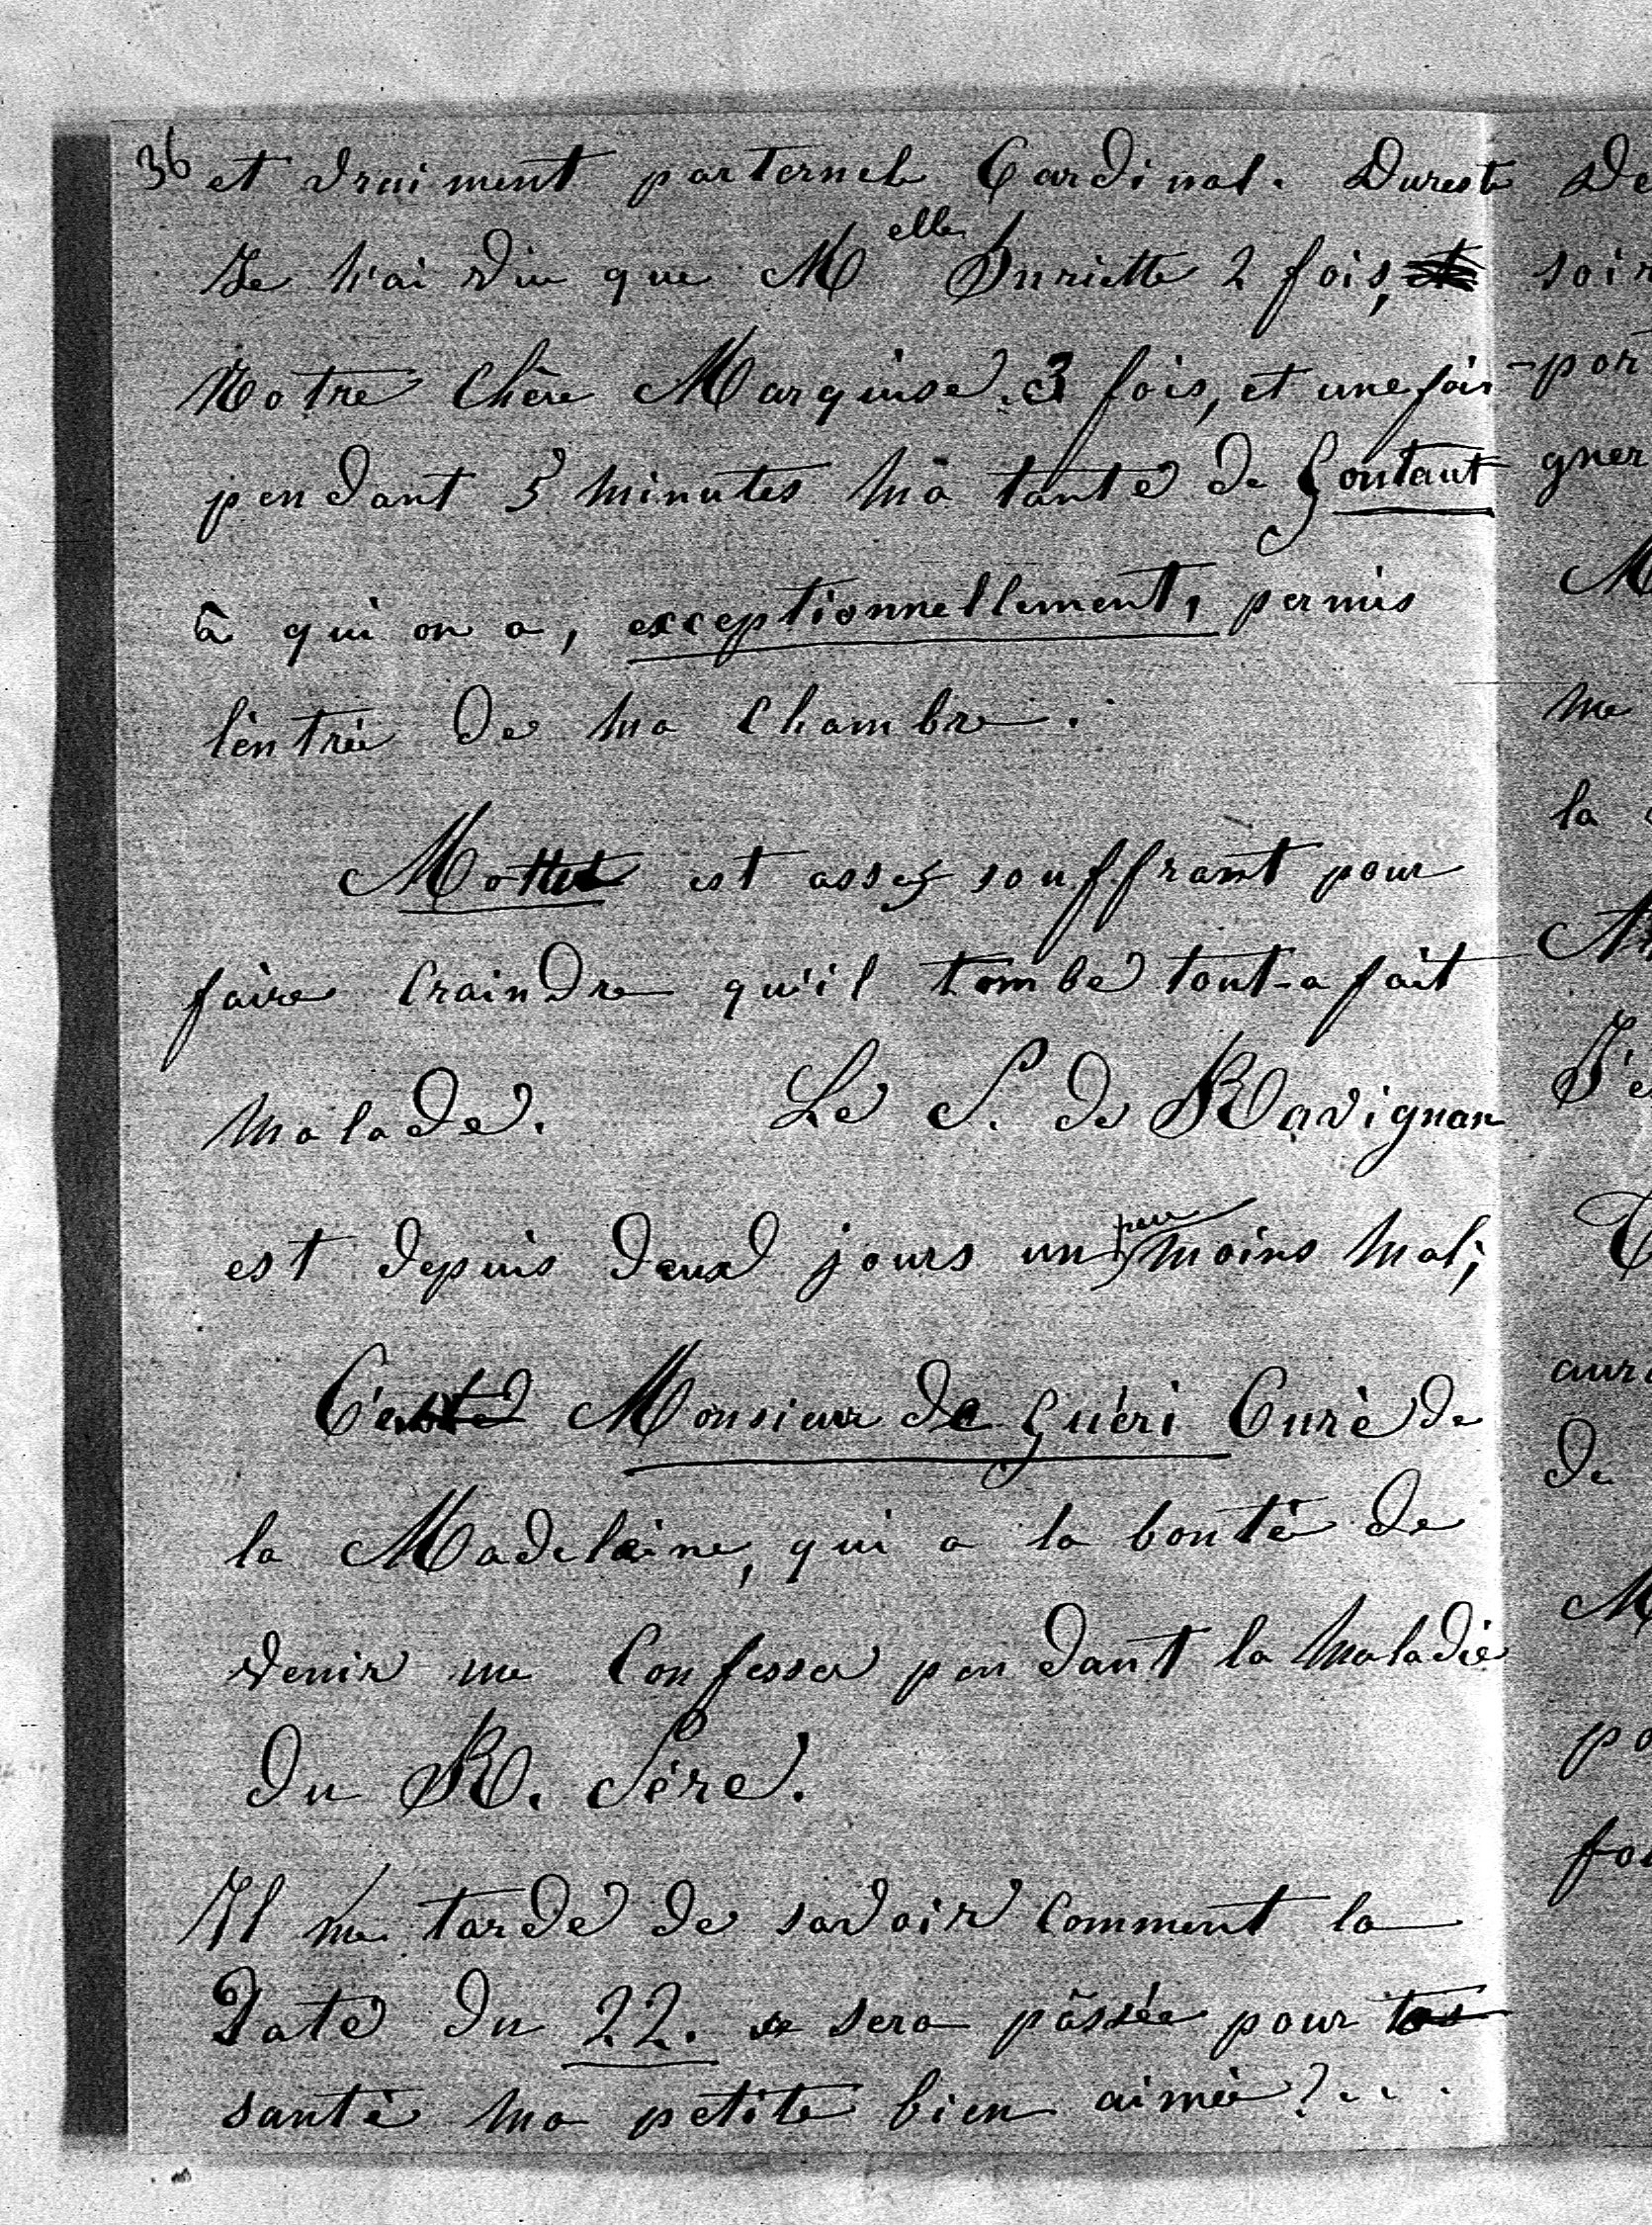 36 et vraiment parternele Cardinal. Dureste
Je n'ai vu que Melle Henriette 2 fois,
Notre chère Marquise 3 fois, et une fois
pendant 5 minutes ma tante de Gontaut
à qui on a, exceptionnellement, permis
l'entrée de ma chambre.
Mottet est assez souffrant pour
faire craindre qu'il tombe tout-a fait
malade. Le P. de Ravignan
est depuis deux jours un peu moins mal;
Monsieur de Guéri Curè de
la Madelaine, qui a la bontè de
venir me confesser pendant la maladie
du R. Père.
Il me tarde de savoir comment la
Date du 22. se sera pâssée pour
santè ma petite bien aimée?...